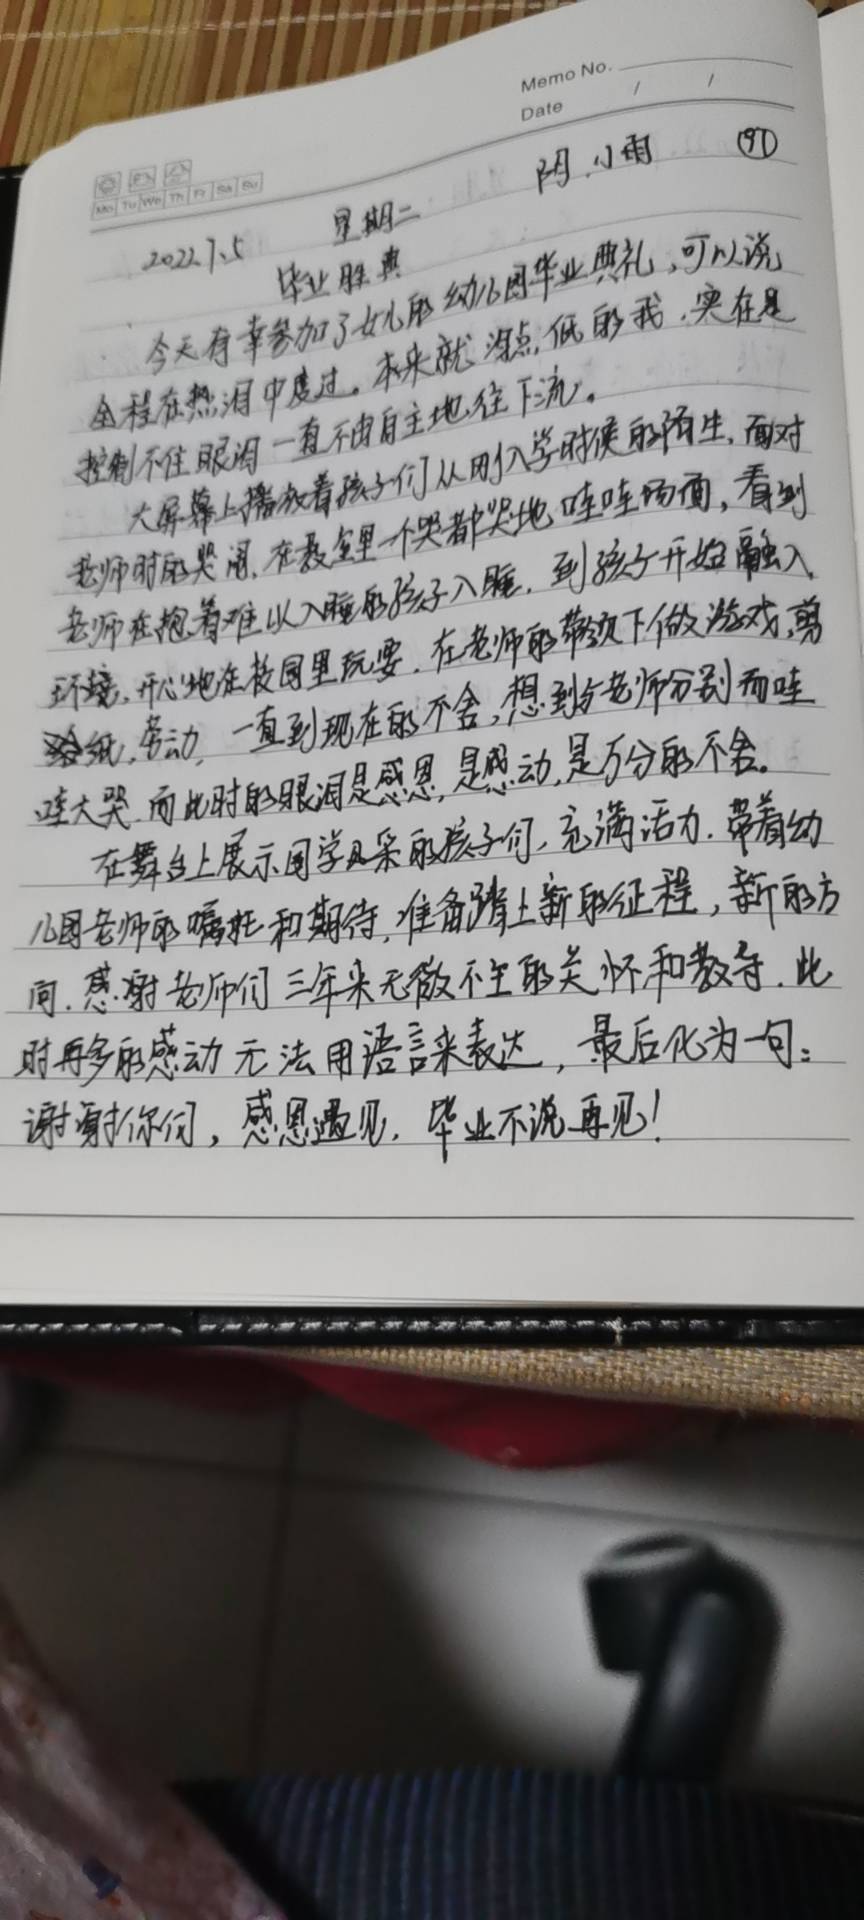 Memo No.
Date / /
Mo Tu We Th Fr Sa Su
阴.小雨 97
2022.7.5 星期二
毕业胜典
今天有幸参加了女儿的幼儿园毕业典礼,可以说
全程在热泪中度过。本来就泪点低的我,实在是
控制不住眼泪一直不由自主地往下流。
大屏幕上播放着孩子们从刚入学时候的陌生,面对
老师时的哭闹,在教室里一个哭都哭地哇哇场面,看到
老师在抱着难以入睡的孩子入睡,到孩子开始融入
环境,开心地在校园里玩耍,在老师的带领下做游戏,剪
纸,劳动,一直到现在的不舍,想到与老师分别而哇
哇大哭.而此时的眼泪是感恩,是感动,是万分的不舍。
在舞台上展示国学风采的孩子们,充满活力.带着幼
儿园老师的嘱托和期待,准备踏上新的征程,新的方
向.感谢老师们三年来无微不至的关怀和教导.此
时再多的感动无法用语言来表达,最后化为一句:
谢谢你们,感恩遇见,毕业不说再见!